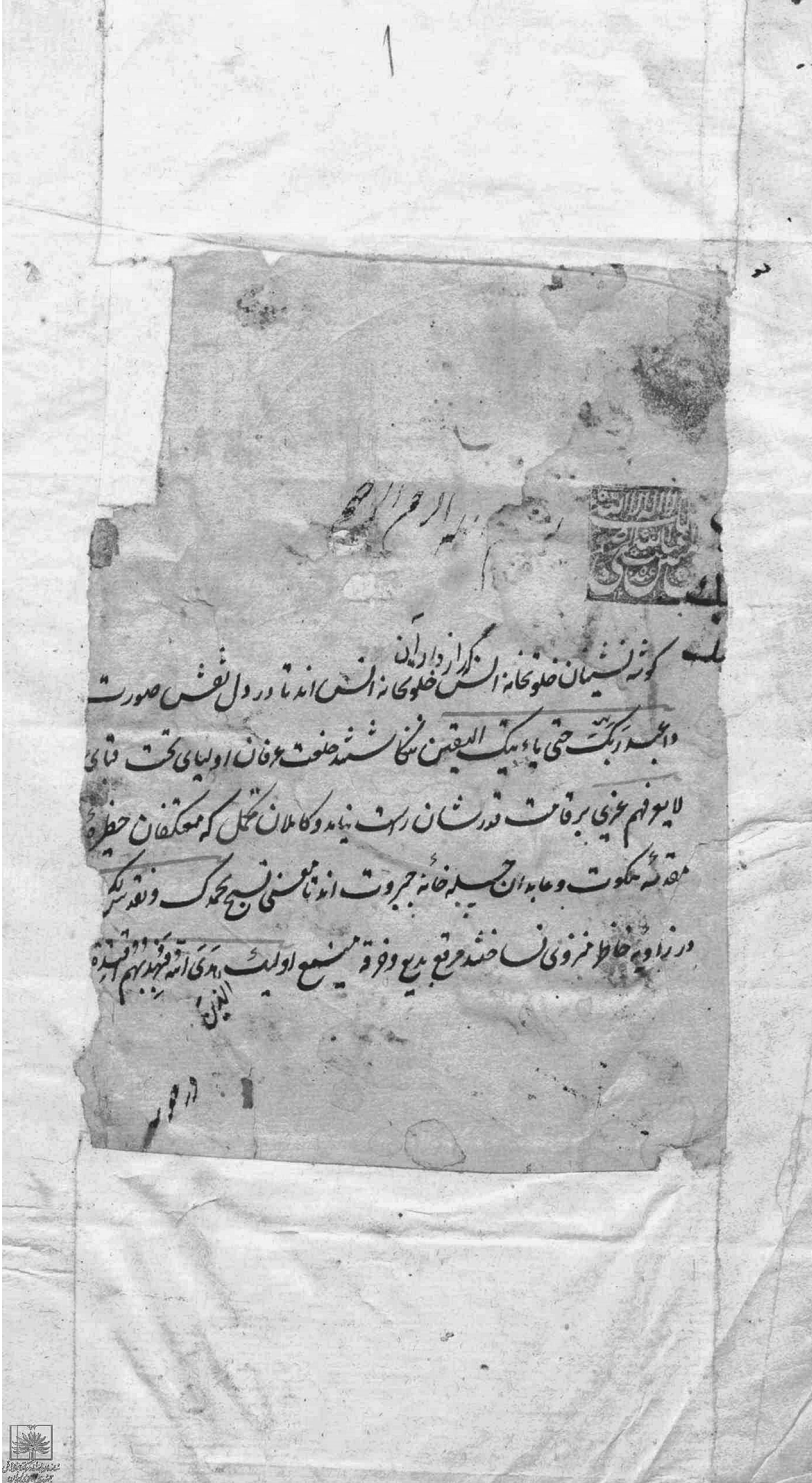 ۱
بسم الله الرحمن الرحیم
گوشه نشینان خلوتخانه انس که از واردان خلوتخانه انس اند تا در دل نقش صورت
واعبد ربک حتی یاتیک الیقین ننگاشتند خلعت عرفان اولیای تحت قبای
لا یعرفهم غیری بر قامت قدرشان راست نیامد و کاملان مکمل که معتکفان حظیرهٔ
مقدسه ملکوت و عابدان چله خانه جبروت اند تا معنی نسبح بحمدک و نقدس لک
در زاویه خاطر منزوی نساختند مرقع بدیع و خرقه منیع اولئک الذین هدی الله فبهدیهم اقتده
در بر